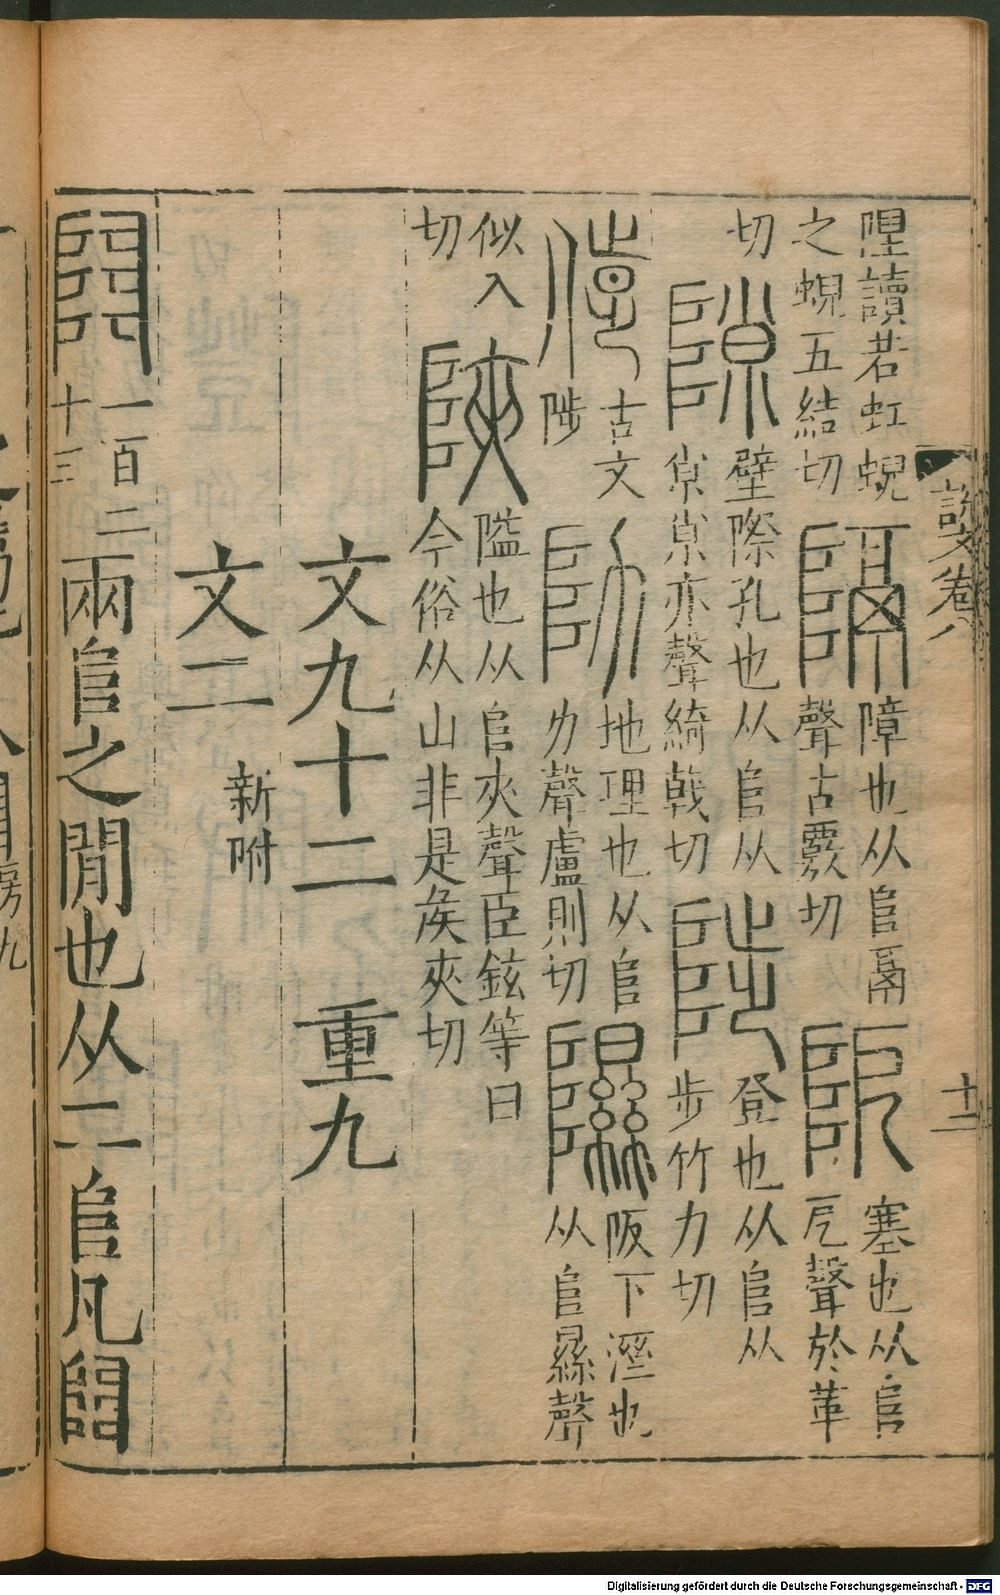 隉讀若虹蜺
之蜺五結切
隔
障也从𨸏鬲
聲古覈切
阨
塞也从𨸏
㔾聲於革
切
隙
壁際孔也从𨸏从
𡭴𡭴亦聲綺戟切
陟
登也从𨸏从
步竹力切
古文
陟
阞
地理也从𨸏
力聲盧則切
隰
阪下溼也
从𨸏㬎聲
似入
切
陜
隘也从𨸏夾聲臣鉉等曰
今俗从山非是矦夾切
文九十二 重九
文二 新附
𨺅
一百二
十三
兩𨸏之閒也从二𨸏凡𨺅
説文卷八
十二
Digitalisierung gefördert durch die Deutsche Forschungsgemeinschaft - DFG